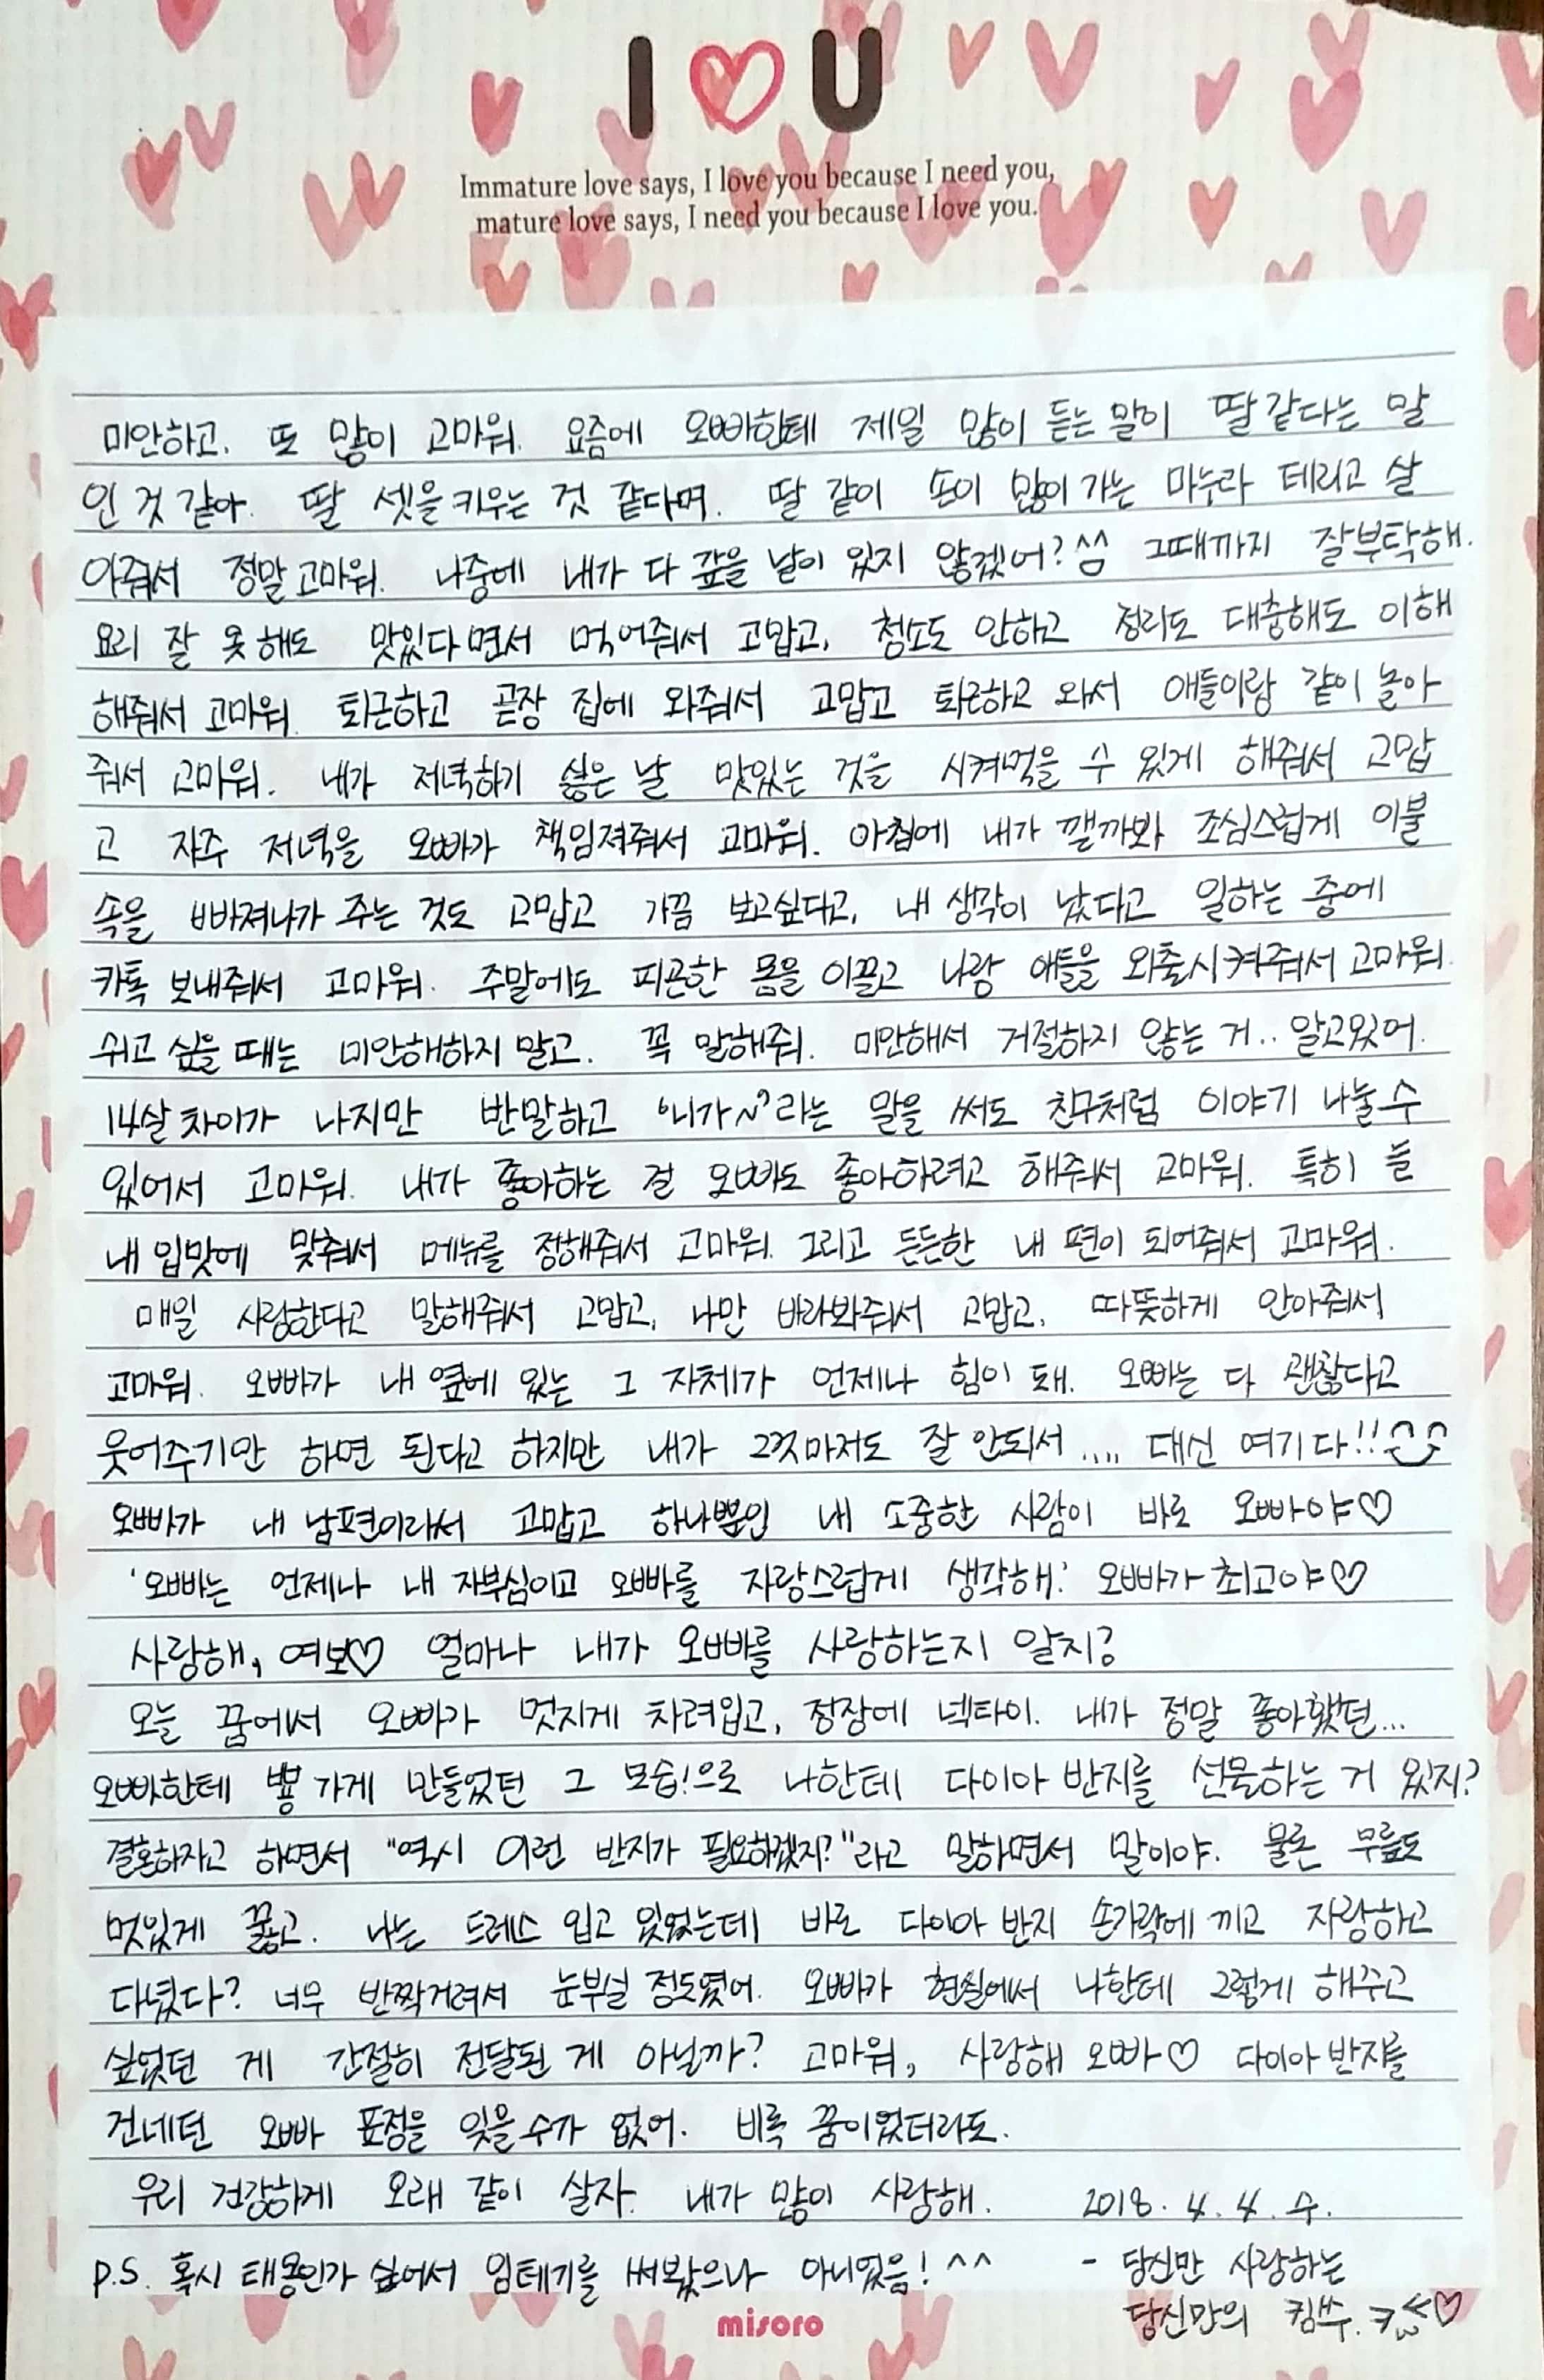 I ♡ U
Immature love says, I love you because I need you,
mature love says, I need you because I love you.
미안하고. 또 많이 고마워. 요즘에 오빠한테 제일 많이 듣는 말이 딸 같다는 말
인 것 같아. 딸 셋을 키우는 것 같다며. 딸 같이 손이 많이 가는 마누라 데리고 살
아줘서 정말 고마워. 나중에 내가 다 갚을 날이 있지 않겠어? ^^ 그때까지 잘부탁해.
요리 잘 못해도 맛있다면서 먹어줘서 고맙고, 청소도 안하고 정리도 대충해도 이해
해줘서 고마워. 퇴근하고 곧장 집에 와줘서 고맙고 퇴근하고 와서 애들이랑 같이 놀아
줘서 고마워. 내가 저녁하기 싫은 날 맛있는 것을 시켜먹을 수 있게 해줘서 고맙
고 자주 저녁을 오빠가 책임져줘서 고마워. 아침에 내가 깰까봐 조심스럽게 이불
속을 빠져나가 주는 것도 고맙고 가끔 보고싶다고, 내 생각이 났다고 일하는 중에
카톡 보내줘서 고마워. 주말에도 피곤한 몸을 이끌고 나랑 애들을 외출시켜줘서 고마워.
쉬고 싶을 때는 미안해하지 말고. 꼭 말해줘. 미안해서 거절하지 않는 거.. 알고있어.
14살 차이가 나지만 반말하고 '니가~'라는 말을 써도 친구처럼 이야기 나눌 수
있어서 고마워. 내가 좋아하는 걸 오빠도 좋아하려고 해줘서 고마워. 특히 늘
내 입맛에 맞춰서 메뉴를 정해줘서 고마워. 그리고 든든한 내 편이 되어줘서 고마워.
매일 사랑한다고 말해줘서 고맙고, 나만 바라봐줘서 고맙고, 따뜻하게 안아줘서
고마워. 오빠가 내 옆에 있는 그 자체가 언제나 힘이 돼. 오빠는 다 괜찮다고
웃어주기만 하면 된다고 하지만 내가 그것마저도 잘 안되서.... 대신 여기다!!
오빠가 내 남편이라서 고맙고 하나뿐인 내 소중한 사람이 바로 오빠야♡
'오빠는 언제나 내 자부심이고 오빠를 자랑스럽게 생각해.' 오빠가 최고야♡
사랑해, 여보♡ 얼마나 내가 오빠를 사랑하는지 알지?
오늘 꿈에서 오빠가 멋지게 차려입고, 정장에 넥타이. 내가 정말 좋아했던...
오빠한테 뿅 가게 만들었던 그 모습!으로 나한테 다이아 반지를 선물하는 거 있지?
결혼하자고 하면서 "역시 이런 반지가 필요하겠지?"라고 말하면서 말이야. 물론 무릎도
멋있게 꿇고. 나는 드레스 입고 있었는데 바로 다이아 반지 손가락에 끼고 자랑하고
다녔다? 너무 반짝거려서 눈부실 정도였어. 오빠가 현실에서 나한테 그렇게 해주고
싶었던 게 간절히 전달된 게 아닐까? 고마워, 사랑해 오빠♡ 다이아 반지를
건네던 오빠 표정을 잊을 수가 없어. 비록 꿈이었더라도.
우리 건강하게 오래 같이 살자. 내가 많이 사랑해. 2018. 4. 4. 수.
P.S. 혹시 태몽인가 싶어서 임테기를 써봤으나 아니었음! ^^ - 당신만 사랑하는
당신만의 킴쑤.
misoro